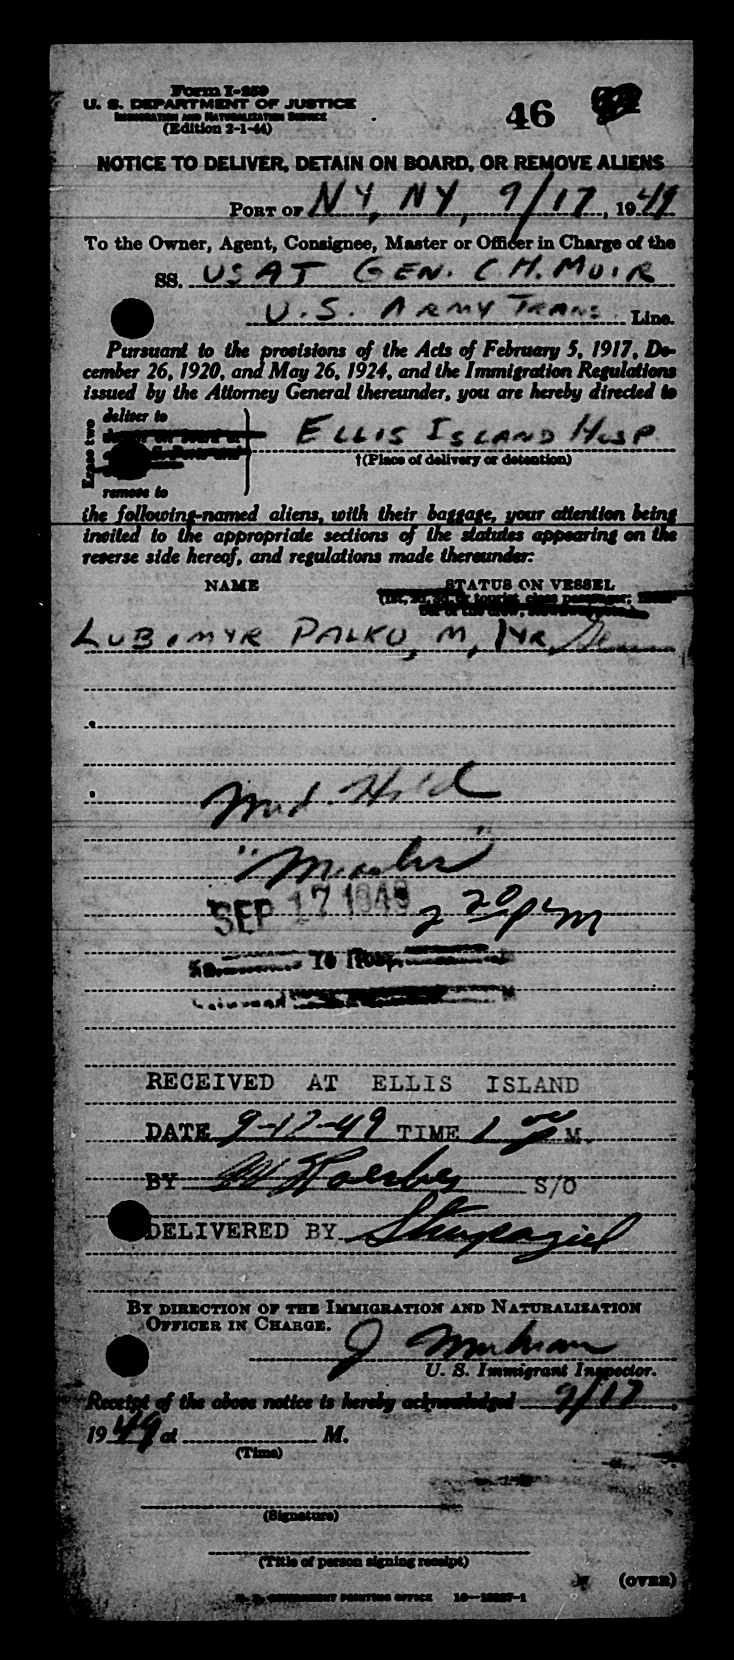 Form I-259
U. S. DEPARTMENT OF JUSTICE
IMMIGRATION AND NATURALIZATION SERVICE
(Edition 2-1-44)
46
NOTICE TO DELIVER, DETAIN ON BOARD, OR REMOVE ALIENS
PORT OF NY, NY, 9/17, 1949
To the Owner, Agent, Consignee, Master or Officer in Charge of the
SS. USAT GEN. C.H. MUIR
U.S. ARMY TRANS. Line.
Pursuant to the provisions of the Acts of February 5, 1917, De-
cember 26, 1920, and May 26, 1924, and the Immigration Regulations
issued by the Attorney General thereunder, you are hereby directed to
Erase two
deliver to
ELLIS ISLAND HOSP.
†(Place of delivery or detention)
remove to
the following-named aliens, with their baggage, your attention being
invited to the appropriate sections of the statutes appearing on the
reverse side hereof, and regulations made thereunder:
NAME STATUS ON VESSEL
LUBOMYR PALKO, M, 1YR
Med. Hold
"Measles"
SEP 17 1949 2 20 pm
To Hosp.
RECEIVED AT ELLIS ISLAND
DATE 9-17-49 TIME 1 00 P M.
BY S/O
DELIVERED BY
BY DIRECTION OF THE IMMIGRATION AND NATURALIZATION
OFFICER IN CHARGE.
U. S. Immigrant Inspector.
Receipt of the above notice is hereby acknowledged 9/17,
1949 at M.
(Time)
(Signature)
(Title of person signing receipt)
(OVER)
U. S. GOVERNMENT PRINTING OFFICE